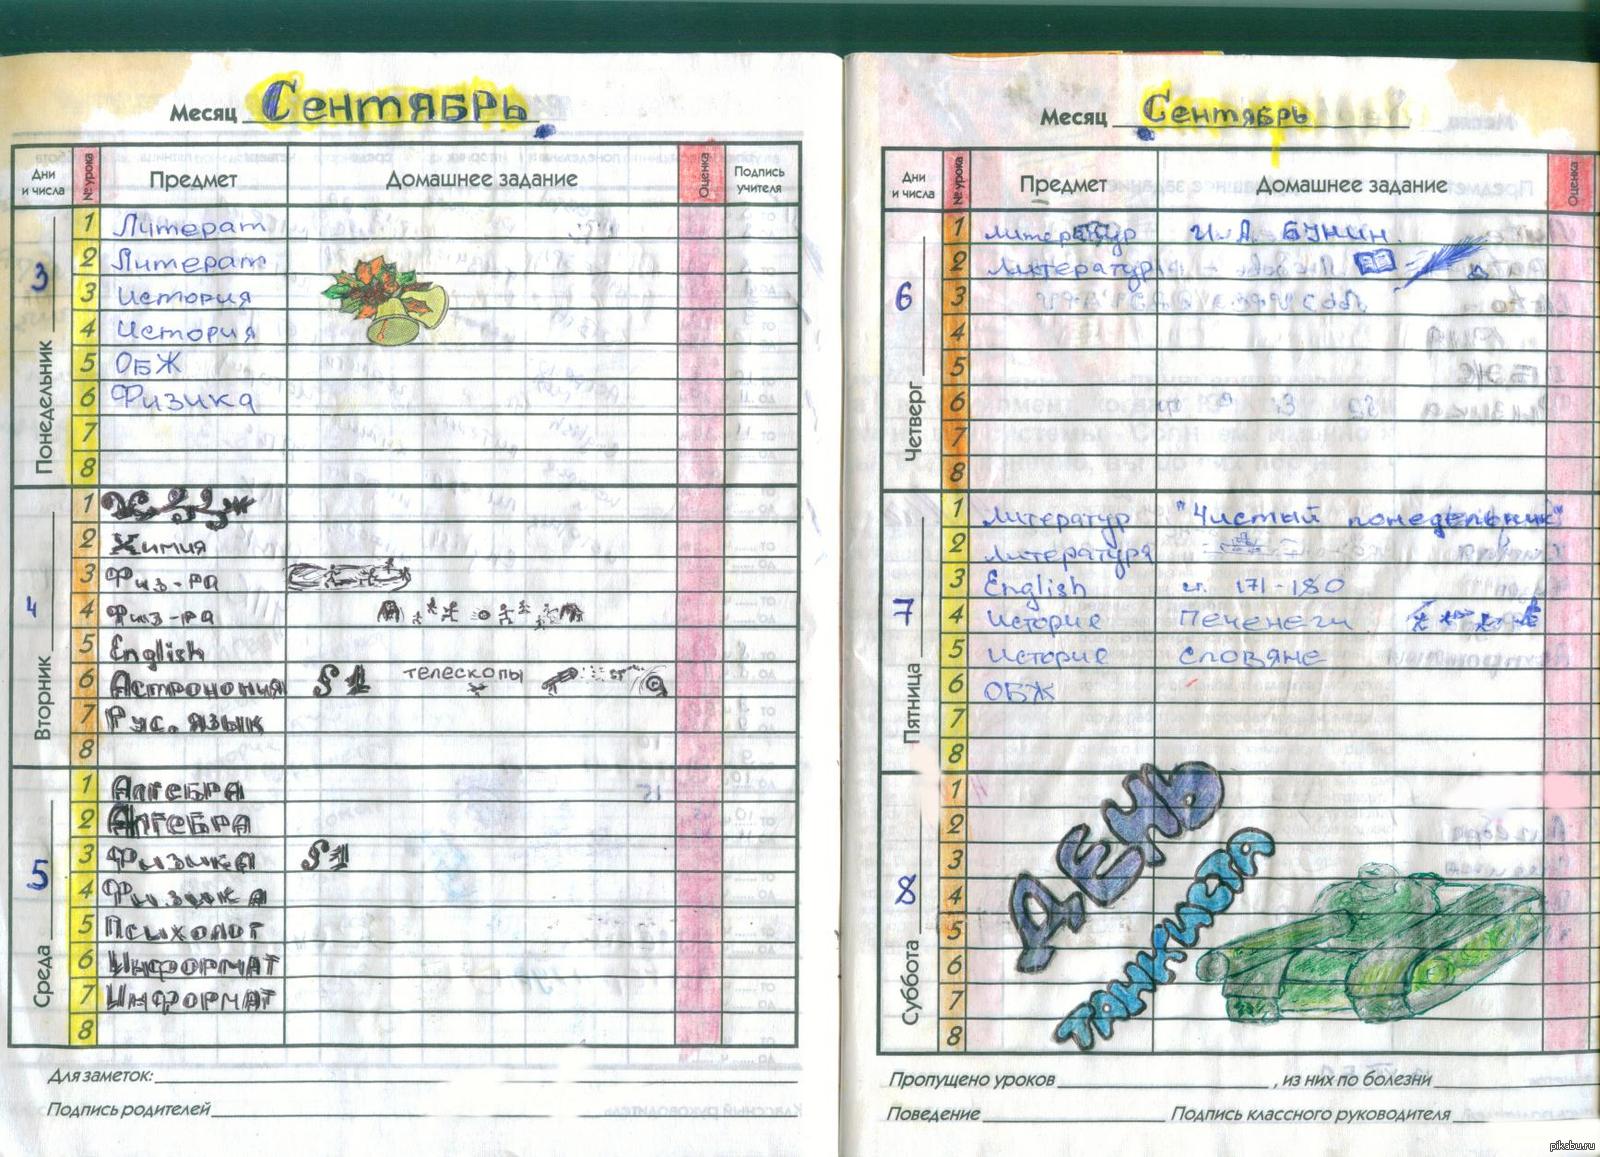 Месяц Сентябрь
Дни и числа № урока Предмет Домашнее задание Оценка Подпись учителя
3 Понедельник
1 Литерат
2 Литерат
3 История
4 История
5 ОБЖ
6 Физика
7
8
4 Вторник
1
2 Химия
3 Физ-ра
4 Физ-ра
5 English
6 Астрономия §1 телескопы
7 Рус. язык
8
5 Среда
1 Алгебра
2 Алгебра
3 Физика §1
4 Физика
5 Психолог
6 Информат
7 Информат
8
Для заметок:
Подпись родителей
Месяц Сентябрь
Дни и числа № урока Предмет Домашнее задание Оценка
6 Четверг
1 Литератур И. А. БУНИН.
2 Литератур
3
4
5
6
7
8
7 Пятница
1 Литератур "Чистый понедельник"
2 Литература
3 English ст. 171-180
4 История Печенеги
5 История Словяне
6 ОБЖ
7
8
8 Суббота
1
2
3
4
5
6
7
8
ДЕНЬ
ТАНКИСТА
Пропущено уроков , из них по болезни
Поведение Подпись классного руководителя
pikabu.ru